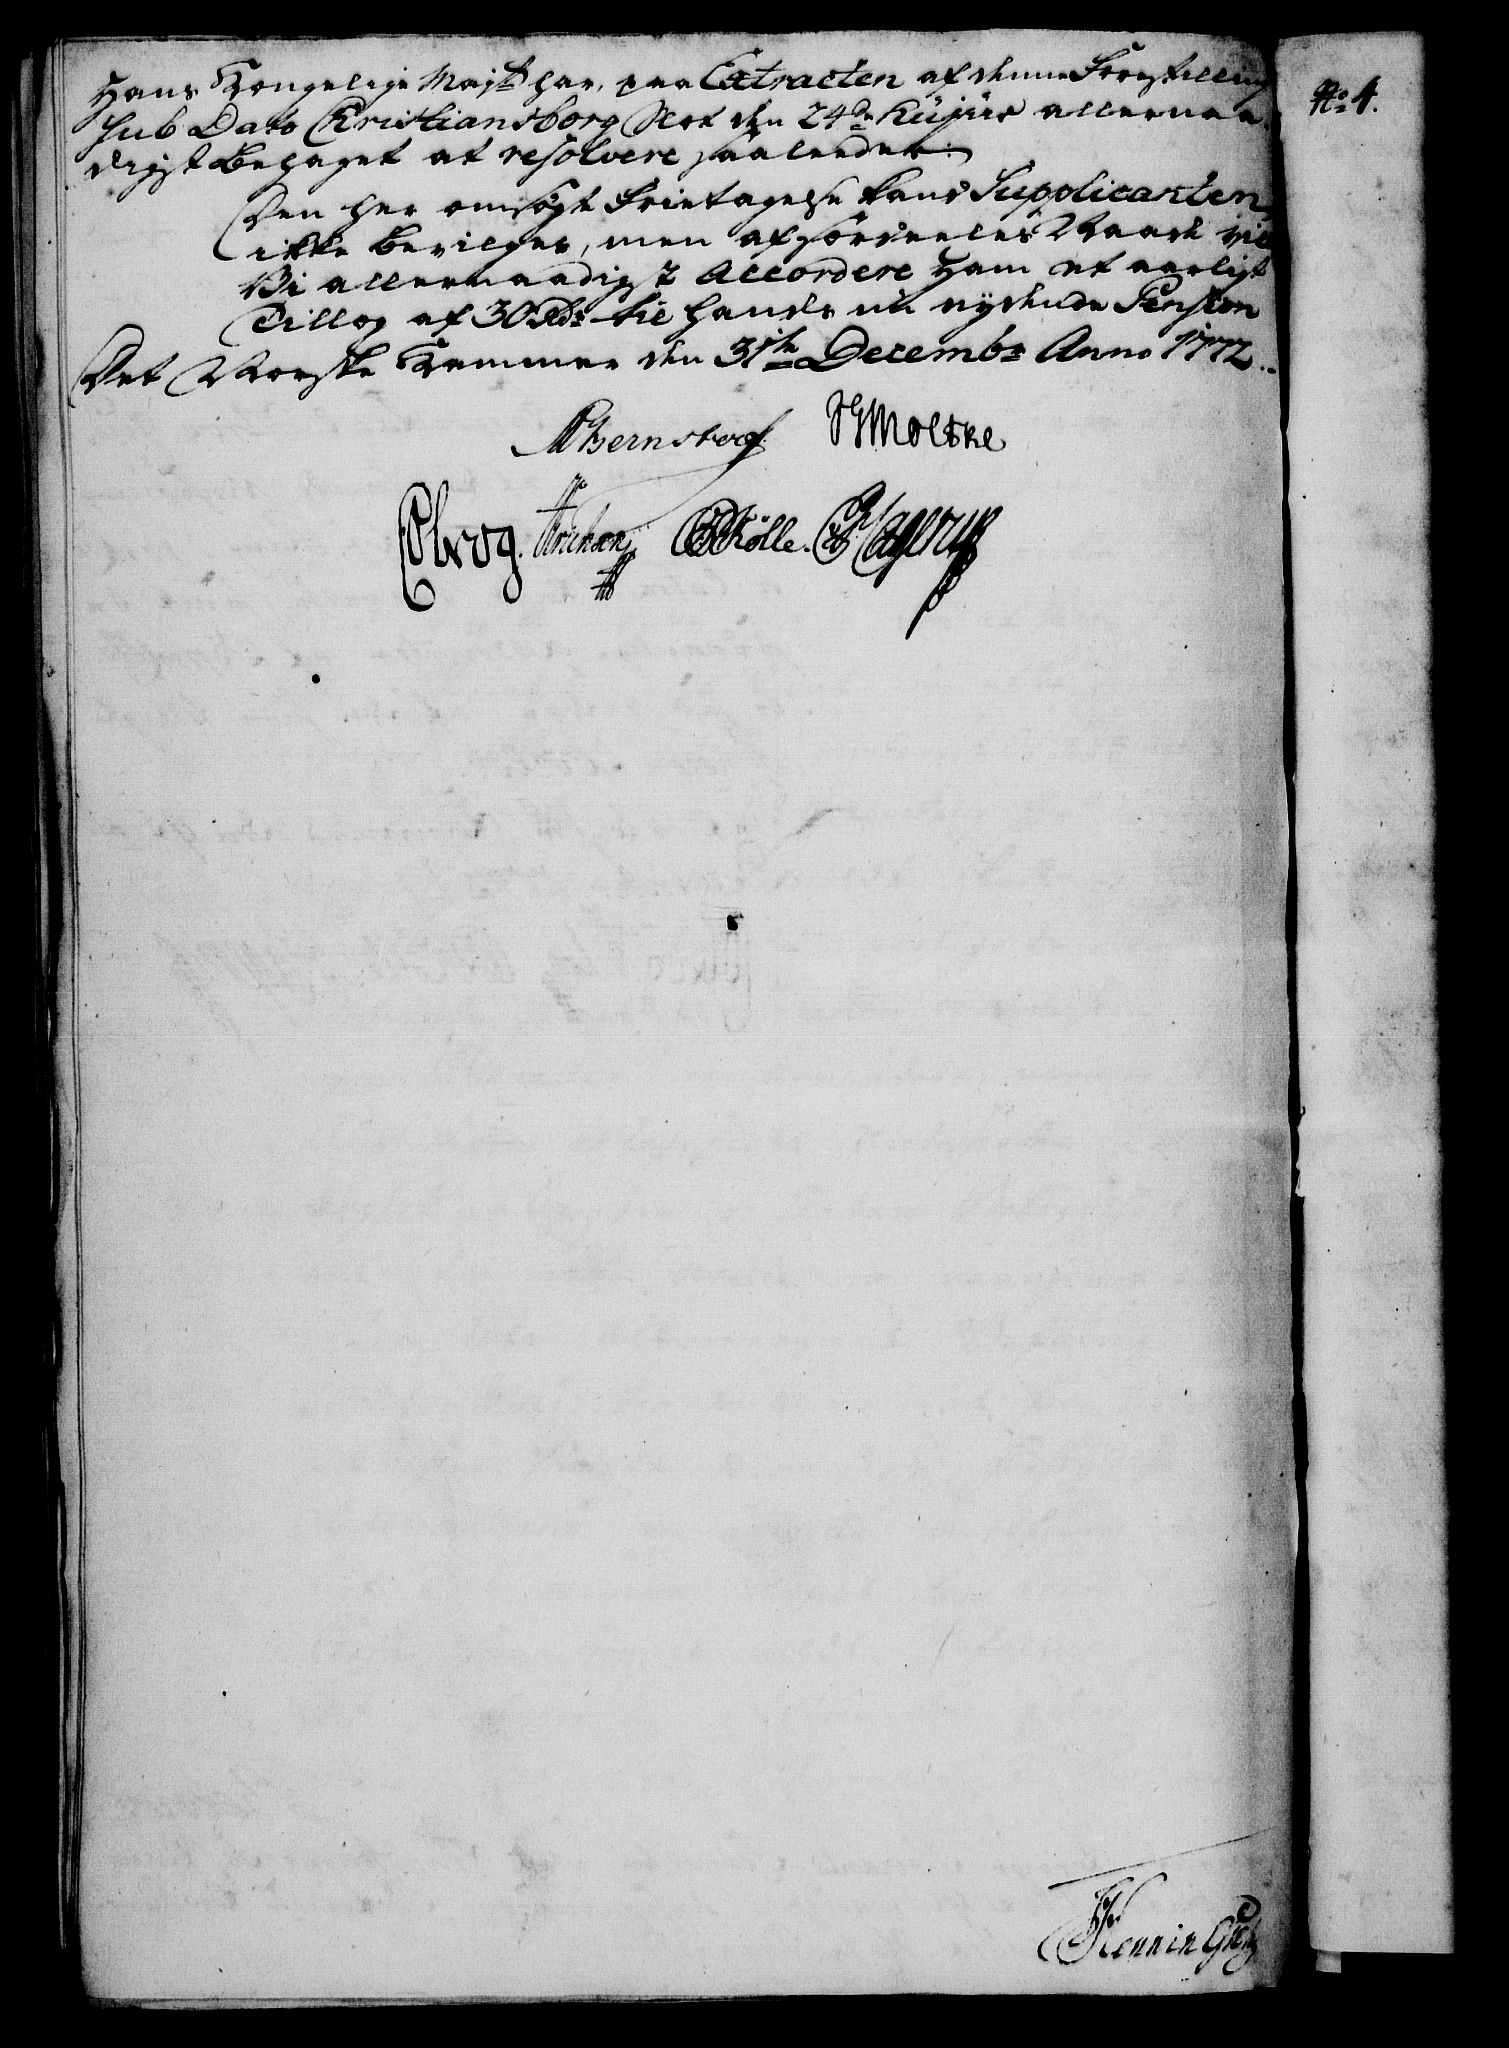 Hans Kongelige Majt har, paa Extracten af denne Forestilling
sub Dato Christiansborg Slot den 24de hujus allernaa-
digst behaget at resolvere saaledes:
Den her omsøgte Fritagelse kand Supplicanten
ikke bevilges, men af særdeeles Naade vil
Vi allernaadigst accordere ham et aarligt
Tillæg af 30 Rdr til hands nu nydende Pension
Det Norske Kammer den 31te Decembr Anno 1772.
Bernstorf. Moltke
Olrog. Erichsen Kølle. Hagerup
Hennin
No 4.